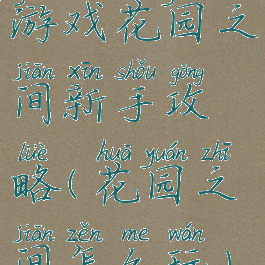 游戏花园之
jiān xīn shǒu gōng
间新手攻
lüè huā yuán zhī
略(花园之
jiān zěn me wán
间怎么玩)